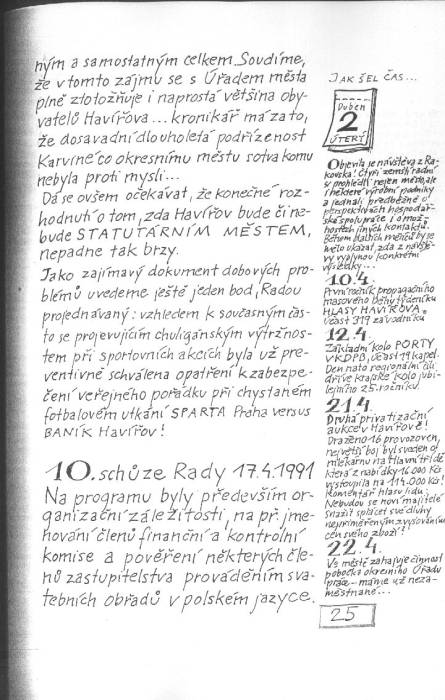 ným a samostatným celkem. Soudíme,
že v tomto zájmu se s Úřadem města
plně ztotožňuje i naprostá většina oby-
vatelů Havířova... kronikář má zato,
že dosavadní dlouholetá podřízenost
Karviné co okresnímu městu sotva komu
nebyla proti mysli...
Dá se ovšem očekávat, že konečné roz-
hodnutí o tom, zda Havířov bude či ne-
bude STATUTÁRNÍM MĚSTEM,
nepadne tak brzy.
Jako zajímavý dokument dobových pro-
blémů uvedeme ještě jeden bod, Radou
projednávaný: vzhledem k současným čas-
to se projevujícím chuligánským výtržnos-
tem při sportovních akcích byla už pre-
ventivně schválena opatření k zabezpe-
čení veřejného pořádku při chystaném
fotbalovém utkání SPARTA Praha versus
BANÍK Havířov!
10. schůze Rady 17.4.1991
Na programu byly především or-
ganizační záležitosti, na př. jme-
nování členů finanční a kontrolní
komise a pověření některých čle-
nů zastupitelstva prováděním sva-
tebních obřadů v polském jazyce.
JAK ŠEL ČAS...
Duben
2
ÚTERÝ
Objevila se návštěva z Ra-
kouska! Čtyři zemští radní
si prohlédli nejen město, ale
i některé výrobní podniky
a jednali předběžně o
perspektivách hospodář-
ské spolupráce i o mož-
nostech jiných kontaktů.
Během dalších měsíců by se
mělo ukázat, zda z návště-
vy vyplynou konkrétní
výsledky...
10.4.
První ročník propagačního
masového běhu týdeníku
HLASY HAVÍŘOVA.
Účast 319 závodníků
12.4.
Základní kolo PORTY
V KDPB, účast 19 kapel.
Den nato regionální čili
dříve krajské kolo jubi-
lejního 25. ročníku.
21.4.
Druhá privatizační
aukce v Havířově!
Draženo 16 provozoven,
největší boj byl sveden o
mlékárnu na Hlavní třídě
která z nabídky 16 000 Kčs
vystoupila na 114.000 Kčs!
Komentář hlasu lidu:
Nebudou se noví majitelé
snažit splácet své dluhy
nepřiměřeným zvyšováním
cen svého zboží?!
22.4.
Ve městě zahajuje činnost
pobočka okresního Úřadu
práce - máme už neza-
městnané...
25